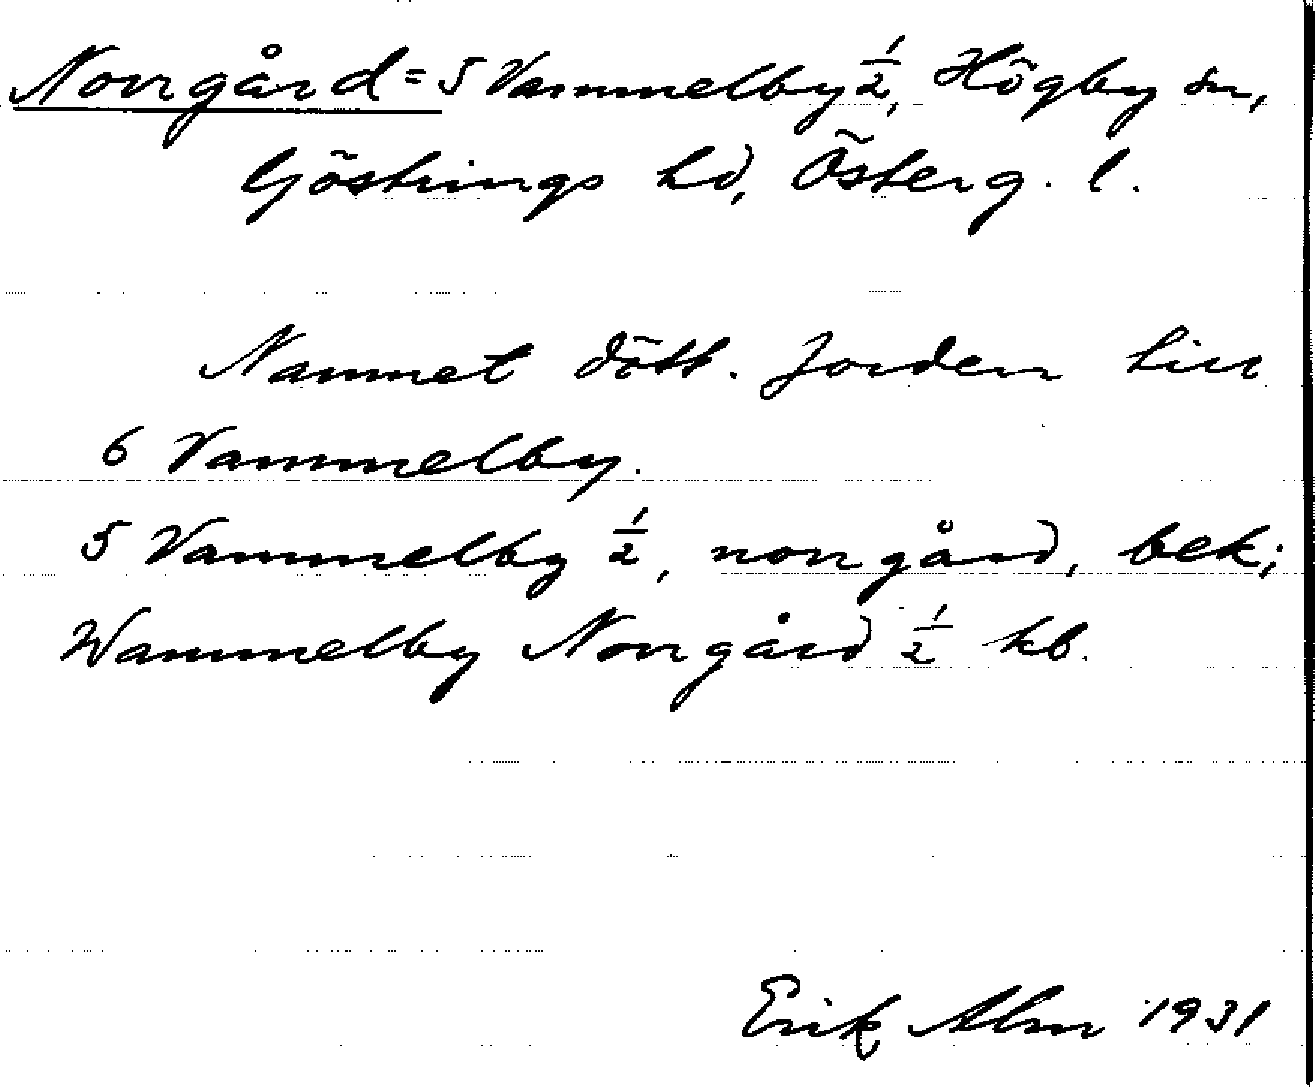 Norrgård = 5 Vammelby 1/2, Högby sn,
Göstrings hd, Österg. l.
Namnet dött. Jorden till
6 Vammelby.
5 Vammelby 1/2, norrgård, bek;
Wammelby Norrgård 1/2 kb.
Erik Alm 1931